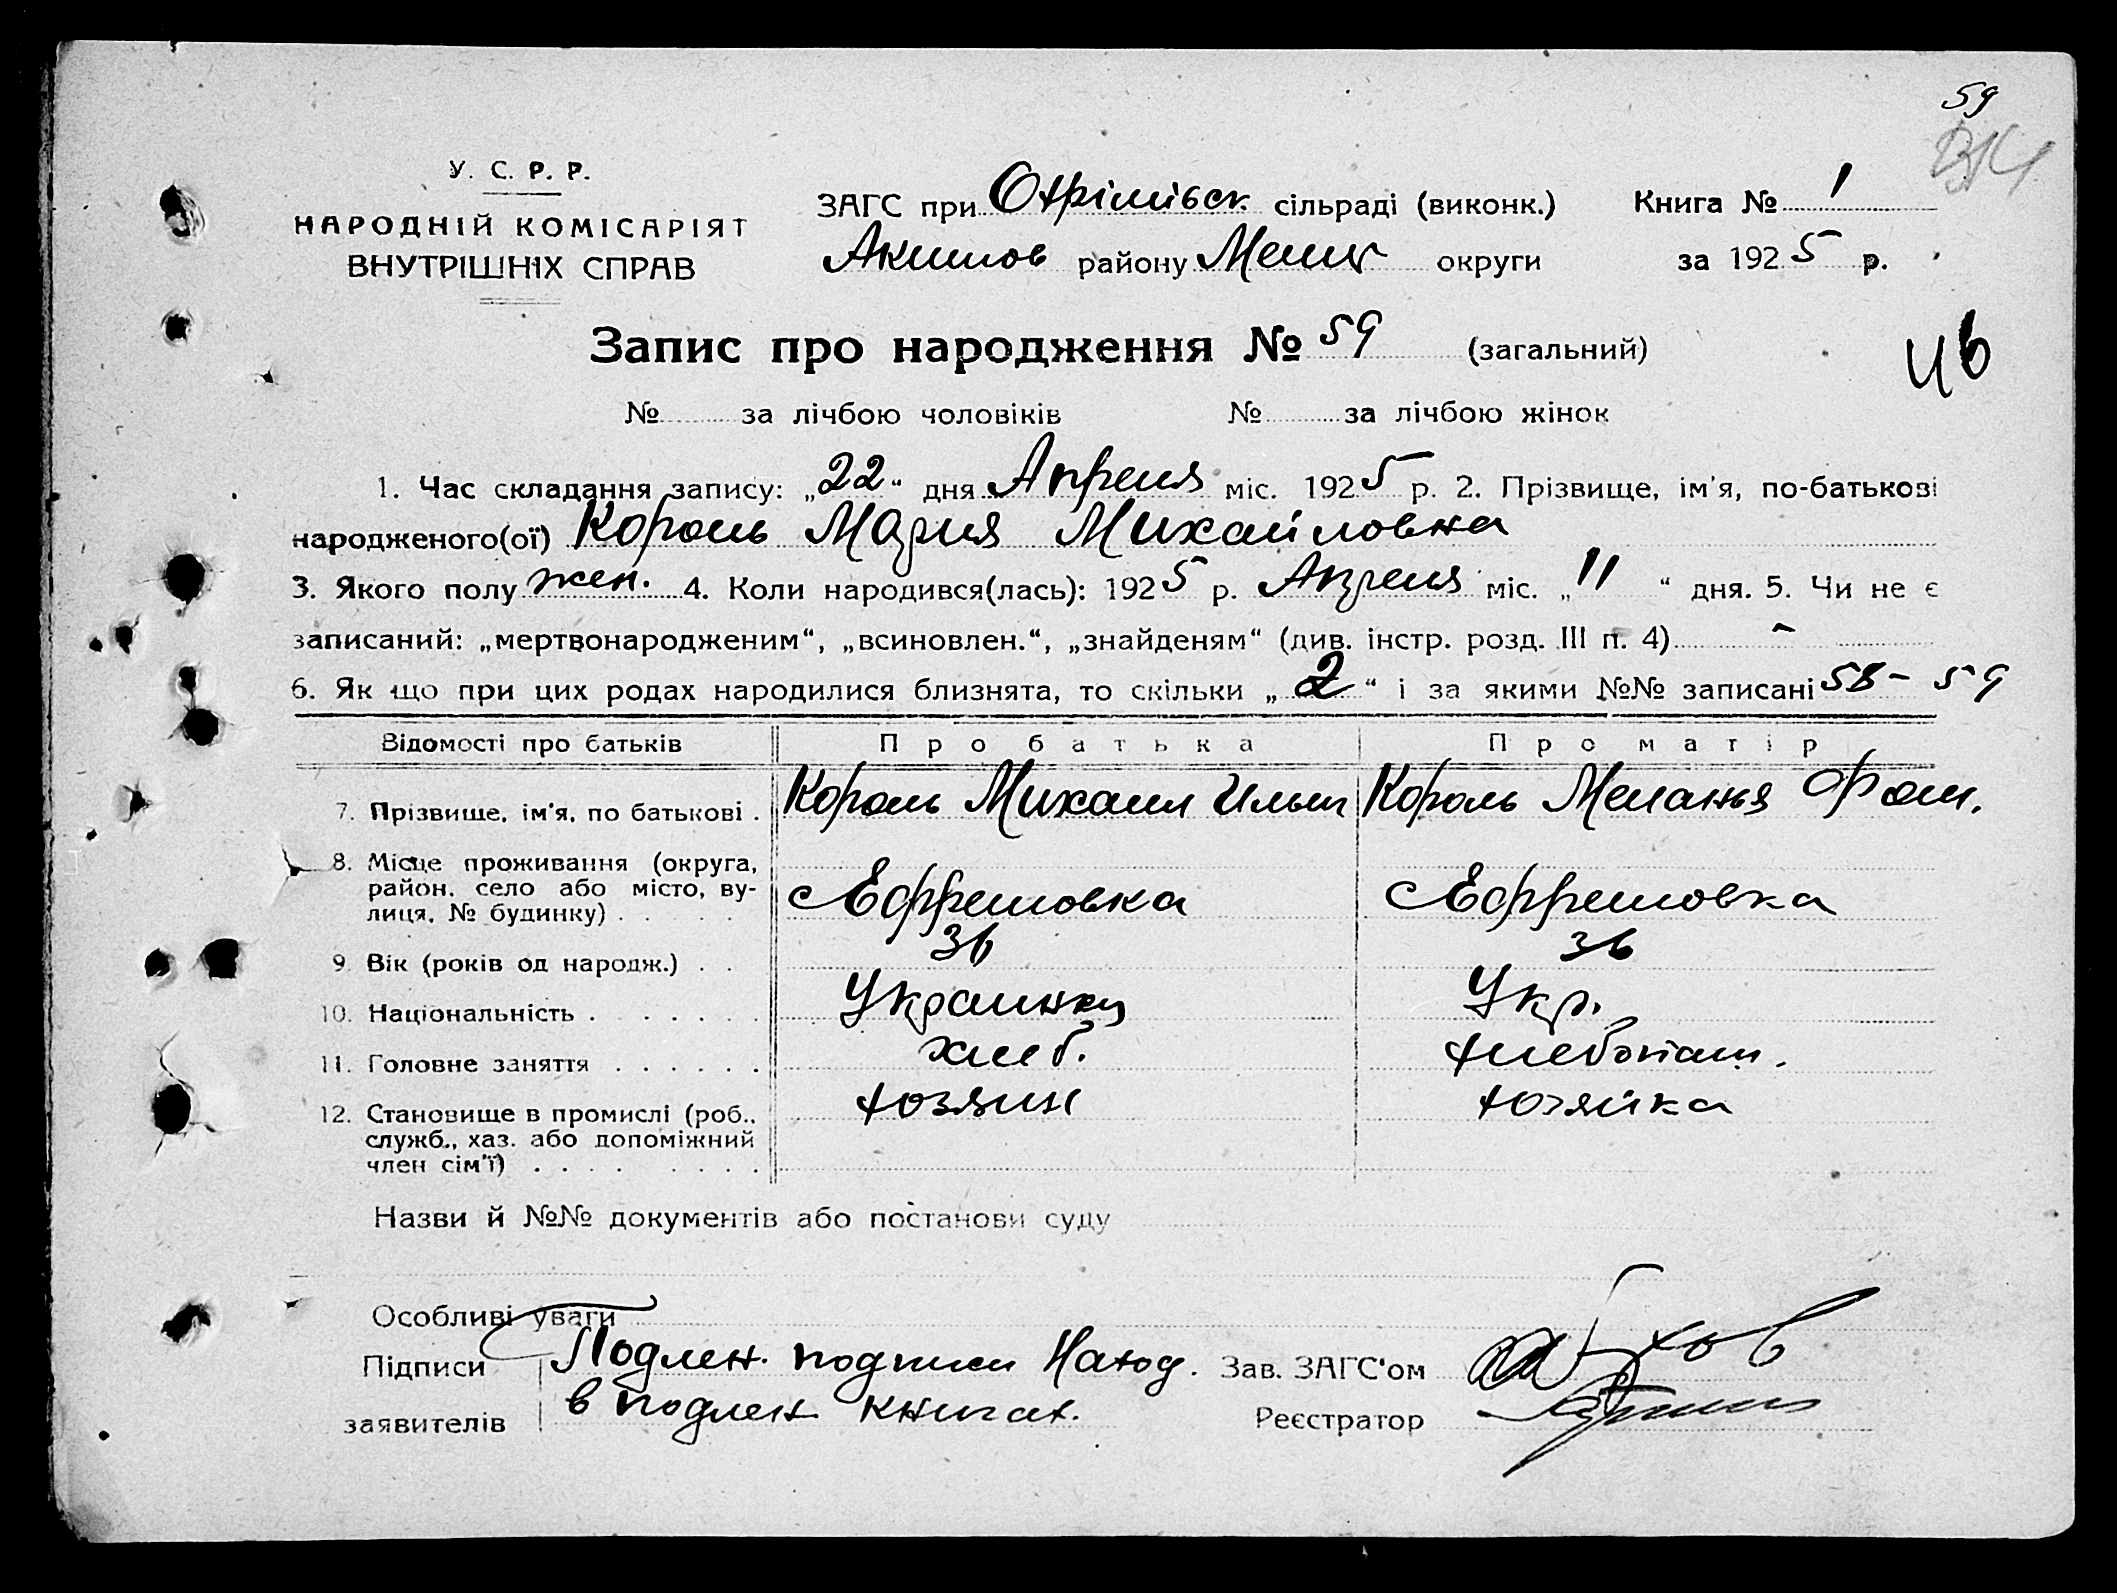 59
У. С. Р. Р.
НАРОДНІЙ КОМІСАРІЯТ
ВНУТРІШНІХ СПРАВ
ЗАГС при Охрімівск сільраді (виконк.) Книга № 1
Акимов району Меліт округи за 1925 р.
Запис про народження № 59 (загальний)
46
№ за лічбою чоловіків № за лічбою жінок
1. Час складання запису: „22“ дня Апреля міс. 1925 р. 2. Прізвище, ім'я, по-батькові
народженого(ої) Король Мария Михайловна
3. Якого полу жен. 4. Коли народився(лась): 1925 р. Апреля міс. „11“ дня. 5. Чи не є
записаний: „мертвонародженим“, „всиновлен.“, „знайденям“ (див. інстр. розд. III п. 4) -
6. Як що при цих родах народилися близнята, то скільки „2“ і за якими №№ записані 58 - 59
Відомості про батьків Про батька Про матір
7. Прізвище, ім'я, по батькові . Король Михаил Ильич Король Меланья Фом.
8. Місце проживання (округа,
район, село або місто, ву-
лиця, № будинку) . . . . . Ефремовка Ефремовка
9 Вік (років од народж.) . . 36 36
10. Національність . . . . . . . Украинец Укр.
11. Головне заняття . . . . . . хлеб. хлебопаш.
12. Становище в промислі (роб.,
служб., хаз. або допоміжний
член сім'ї) . . . . . . . . хозяин хозяйка
Назви й №№ документів або постанови суду
Особливі уваги
Підписи Подлен. подписи Наход. Зав. ЗАГС'ом
заявителів в подлен книгах. Реєстратор